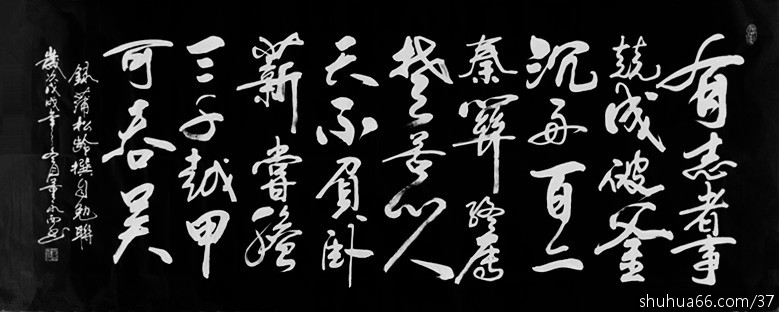 有志者事
競成破釜
沉舟百二
秦關終属
楚苦心人
天不負卧
薪嘗膽
三千越甲
可吞吴
録蒲松齡撰自勉聯
歲次戊戌年
shuhua66.com/37